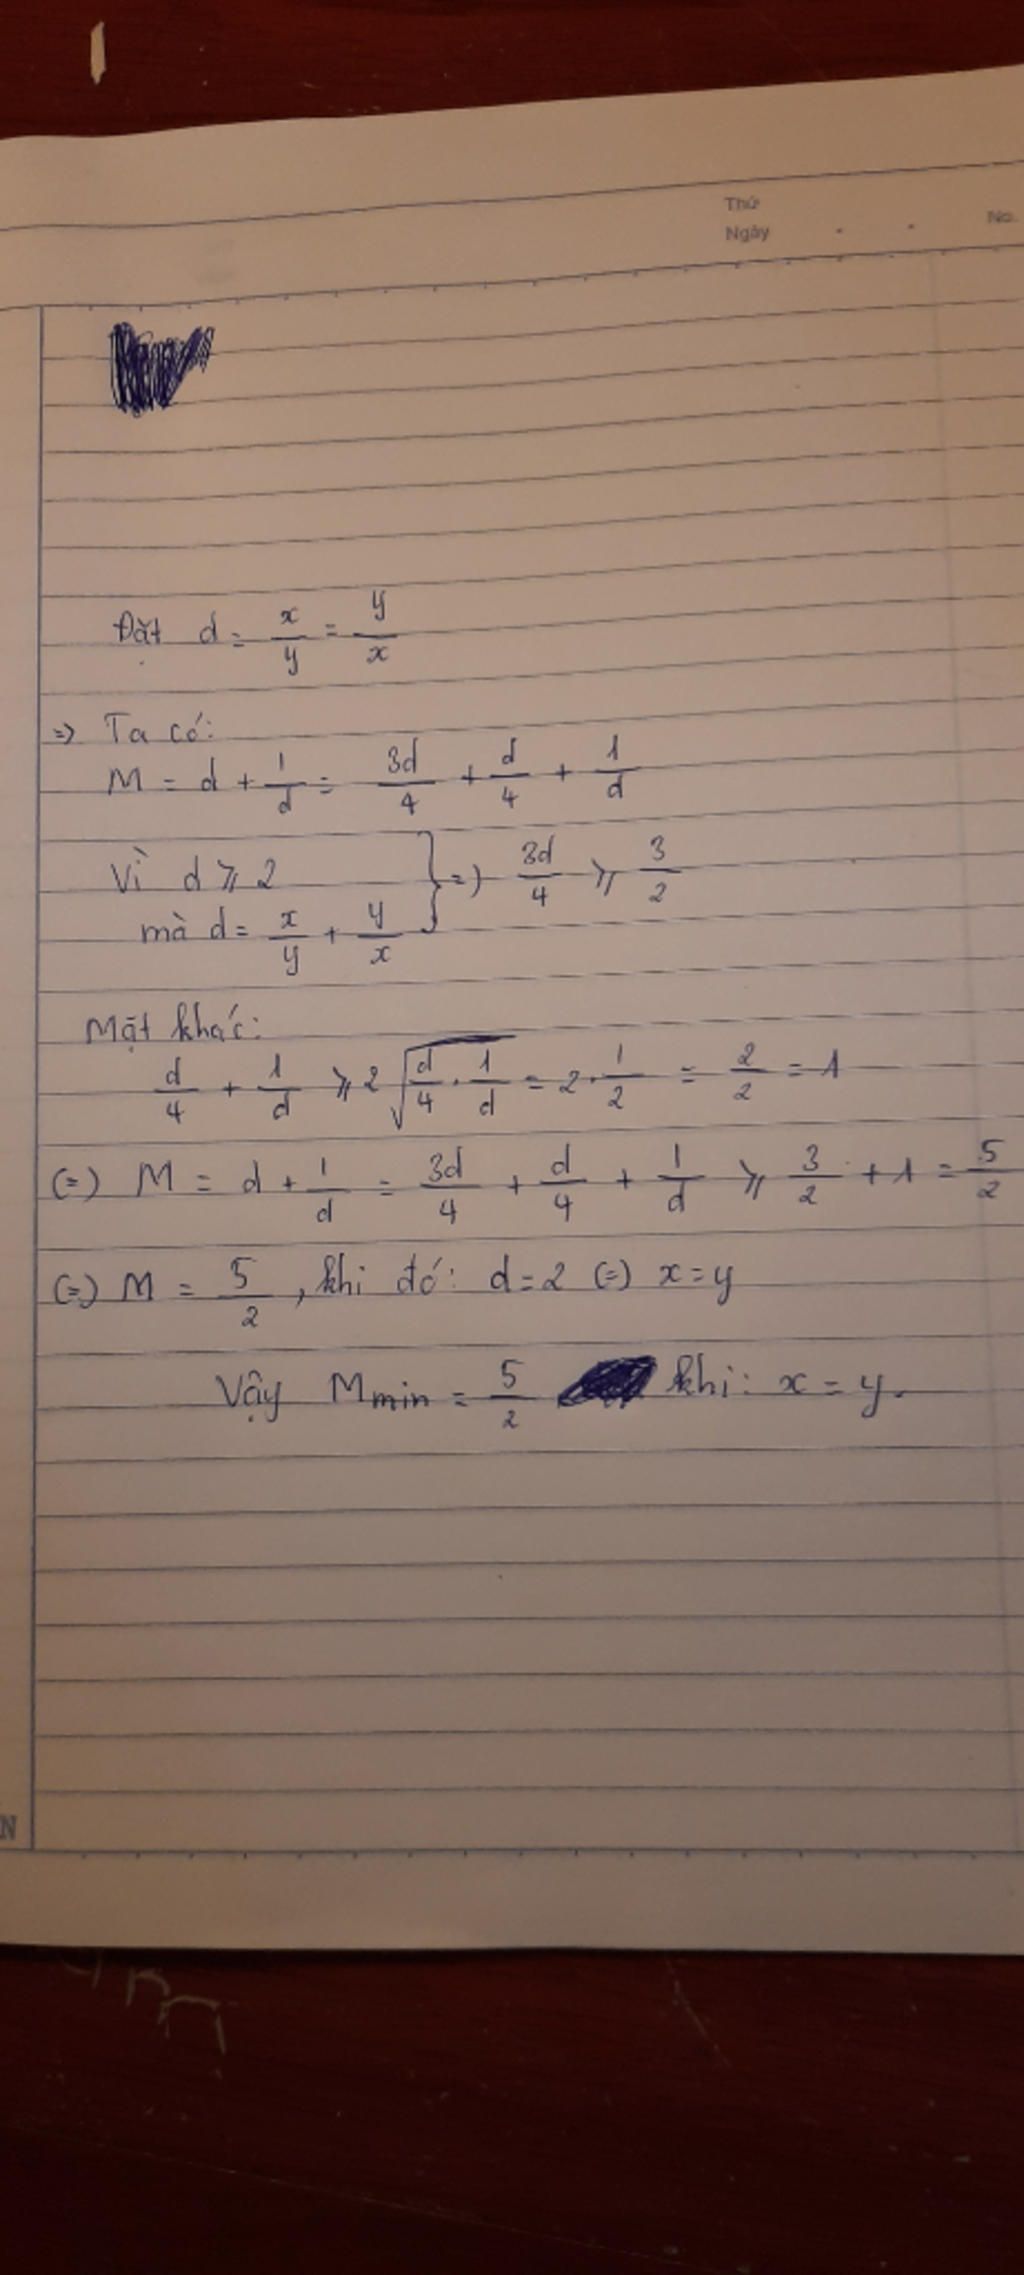 Thứ
Ngày . . No.
Đặt d = x/y = y/x
=> Ta có:
M = d + 1/d = 3d/4 + d/4 + 1/d
Vì d ⩾ 2
mà d = x/y + y/x } => 3d/4 ⩾ 3/2
Mặt khác:
d/4 + 1/d ⩾ 2√(d/4 . 1/d) = 2 . 1/2 = 2/2 = 1
(=) M = d + 1/d = 3d/4 + d/4 + 1/d ⩾ 3/2 + 1 = 5/2
(=) M = 5/2 , khi đó: d = 2 (=) x = y
Vậy Mmin = 5/2 khi: x = y.
N